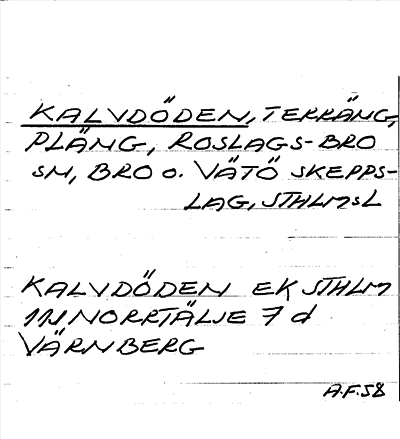 KALVDÖDEN, TERRÄNG,
PLÄNG, ROSLAGS-BRO
SN, BRO o. VÄTÖ SKEPPS-
LAG, STHLMSL
KALVDÖDEN EK STHLM
11J NORRTÄLJE 7 d
VÄRNBERG
A.F.58